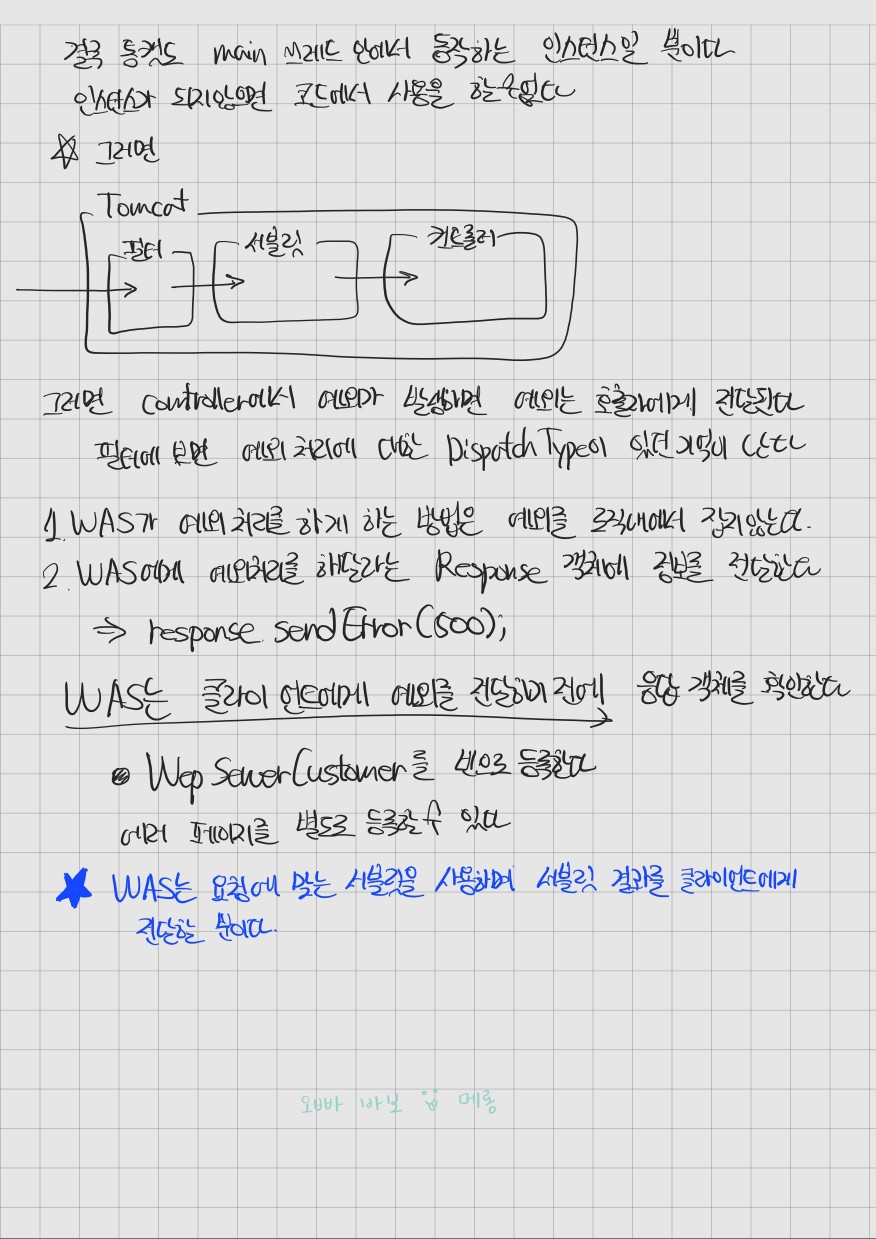 결국 톰캣도 main 쓰레드 안에서 동작하는 인스턴스일 뿐이다
인스턴스가 되지않으면 코드에서 사용을 할 수 없다
☆ 그러면
Tomcat
필터 서블릿 컨트롤러
그러면 controller에서 예외가 발생하면 예외는 호출자에게 전달된다
필터에 보면 예외 처리에 대한 DispatchType이 있던 기억이 난다
1. WAS가 예외처리를 하게 하는 방법은 예외를 로직내에서 잡지않는다.
2. WAS에게 예외처리를 해달라는 Response 객체에 정보를 전달한다
⇒ response.sendError(500);
WAS는 클라이언트에게 예외를 전달하기 전에 응답 객체를 확인한다
● Wep ServerCustomer를 빈으로 등록한다
에러 페이지를 별도로 등록할 수 있다
★ WAS는 요청에 맞는 서블릿을 사용하며 서블릿 결과를 클라이언트에게
전달할 뿐이다.
오빠 바보 메롱